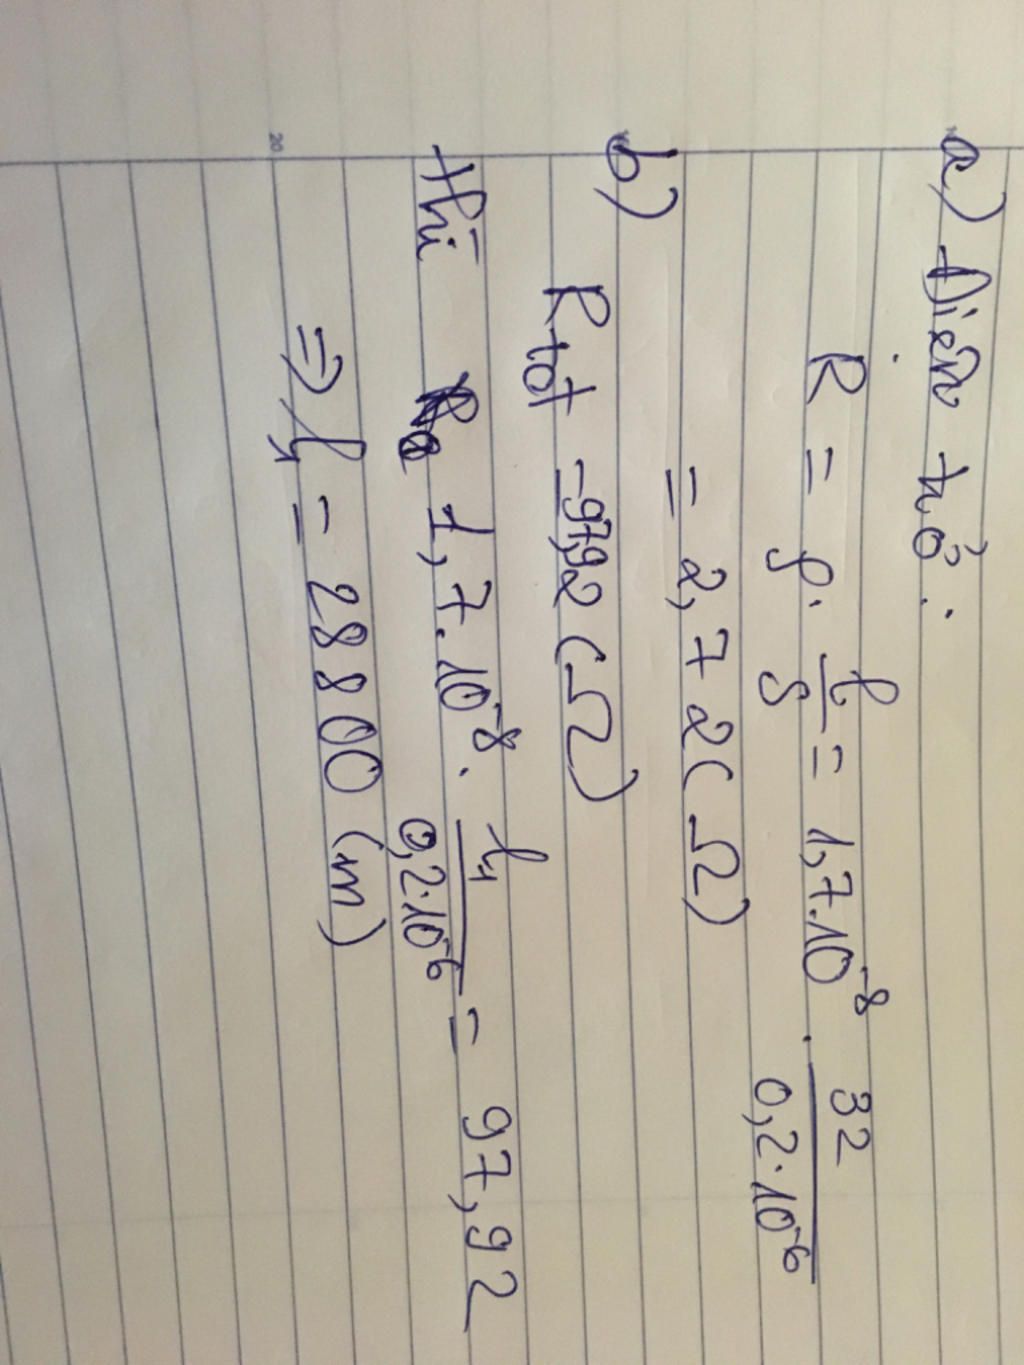 a) Điện trở:
R = ρ. l/S = 1,7.10^-8 . 32/0,2.10^-6
= 2,72 (Ω)
b) Rtot = 97,92 (Ω)
thì 1,7.10^-8 . l1/0,2.10^-6 = 97,92
=> l1 = 28800 (m)
20